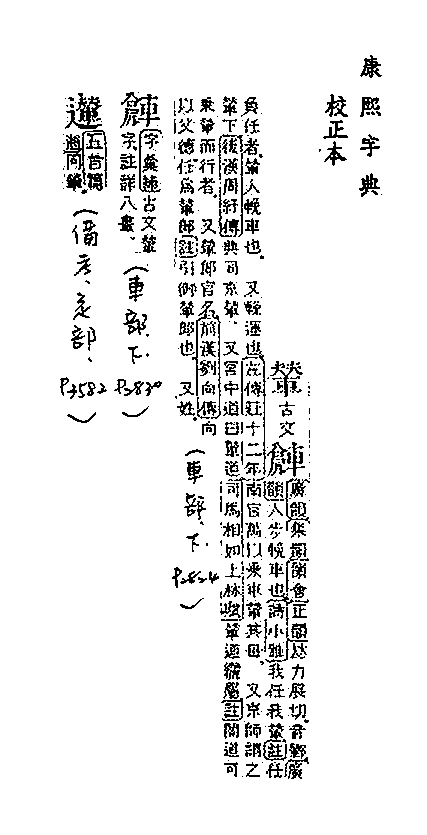 康熙字典
校正本
輦 古文
廣韻集韻韻會正韻𠀤力展切音廣
韻人步輓車也詩小雅我任我輦註任
負任者輦人輓車也 又輓運也左傳莊十二年南宮萬以乘車輦其母 又京師謂之
輦下後漢周紆傳典司京輦 又宮中道曰輦道司馬相如上林賦輦道纚屬註閣道可
乘輦而行者 又輦郎官名前漢劉向傳向
以父德任為輦郎註引御輦郎也 又姓
(車部、下、P2824)
字彙補古文輦
字註詳八畫、
(車部、下、P2830)
五音篇
海同輦
(備考、辵部、P3582)